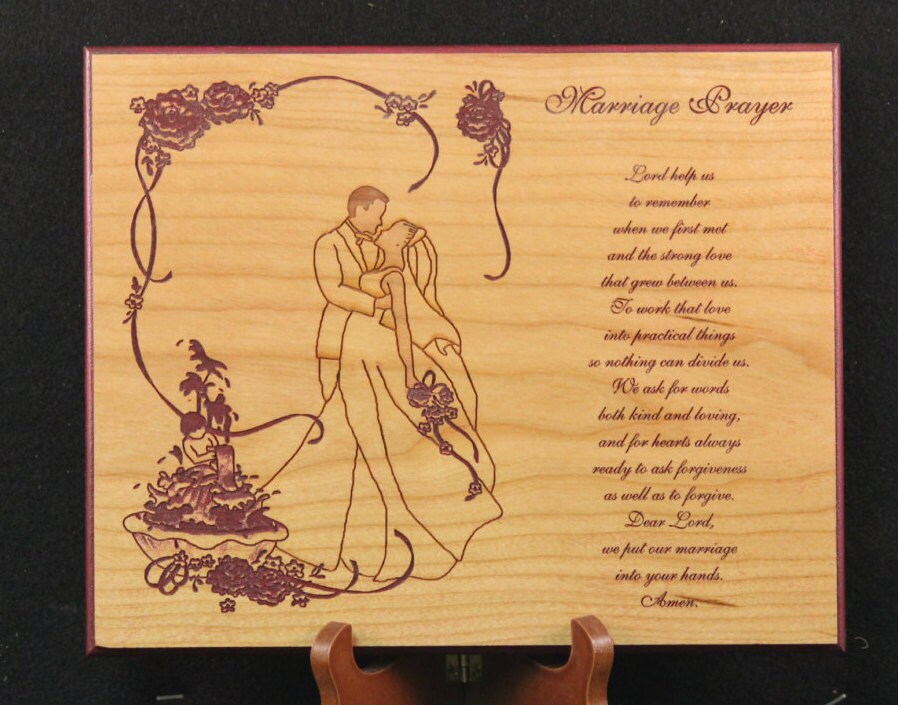 Marriage Prayer
Lord help us
to remember
when we first met
and the strong love
that grew between us.
To work that love
into practical things
so nothing can divide us.
We ask for words
both kind and loving,
and for hearts always
ready to ask forgiveness
as well as to forgive.
Dear Lord,
we put our marriage
into your hands.
Amen.